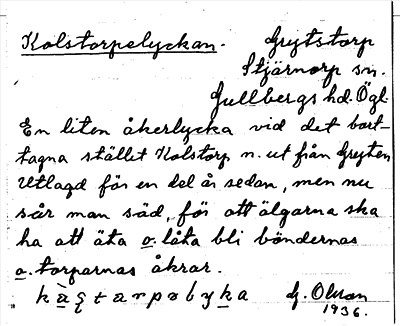 Kolstorpelyckan. Grytstorp
Stjärnorp sn.
Gullbergs hd. Ögl.
En liten åkerlycka vid det bort-
tagna stället Kolstorp n. ut från Gryten
Utlagd för en del år sedan, men nu
sår man säd, för att älgarna ska
ha att äta o. låta bli böndernas
o. torparnas åkrar.
G. Olson
1936.